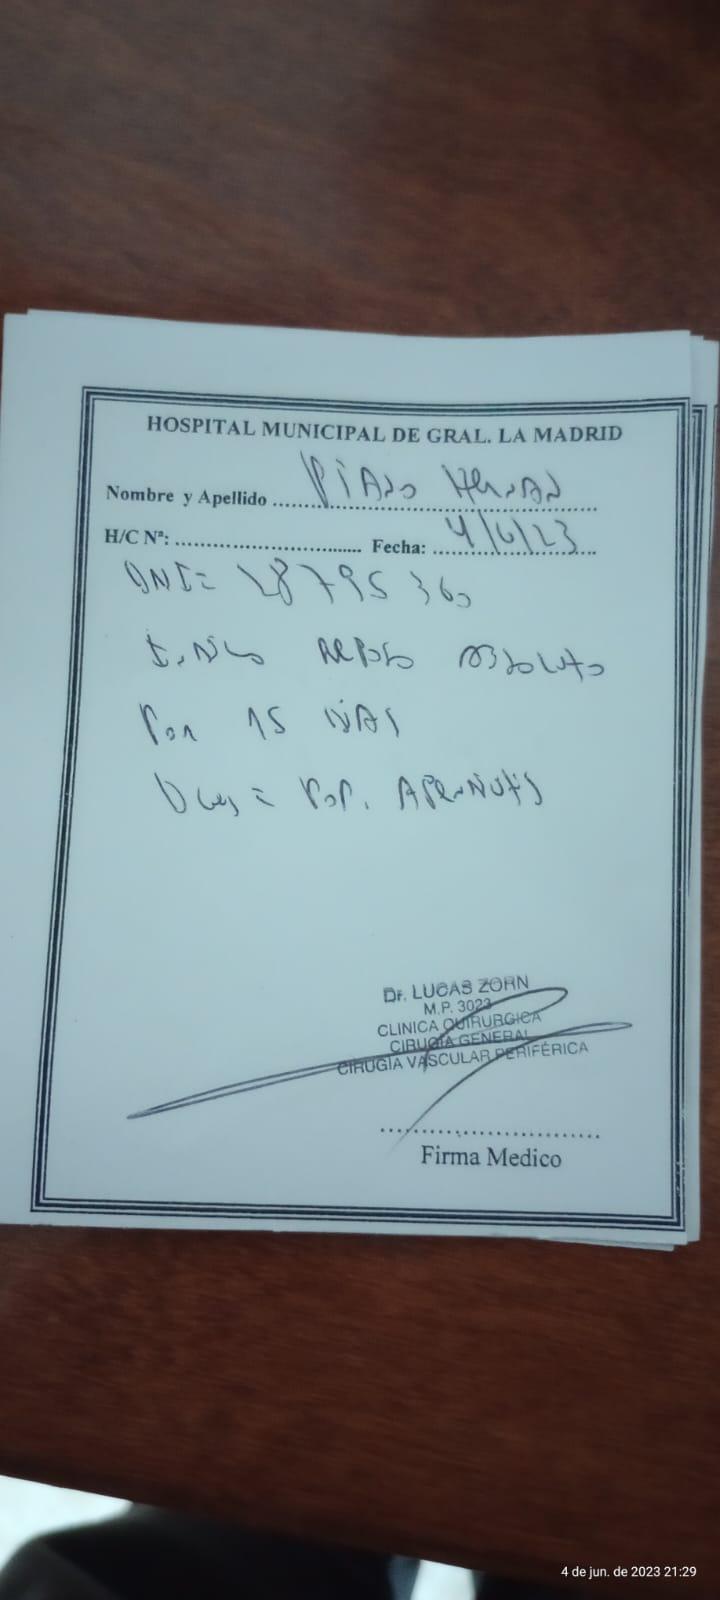 HOSPITAL MUNICIPAL DE GRAL. LA MADRID
Nombre y Apellido Hernan
H/C Nº: Fecha: 4/6/23
DNI= 28795360
Indico reposo absoluto
Por 15 dias
Dias= Pop. Apendicitis
Dr. LUCAS ZORN
M.P. 3023
CLINICA QUIRURGICA
CIRUGIA GENERAL
CIRUGIA VASCULAR PERIFÉRICA
Firma Medico
4 de jun. de 2023 21:29